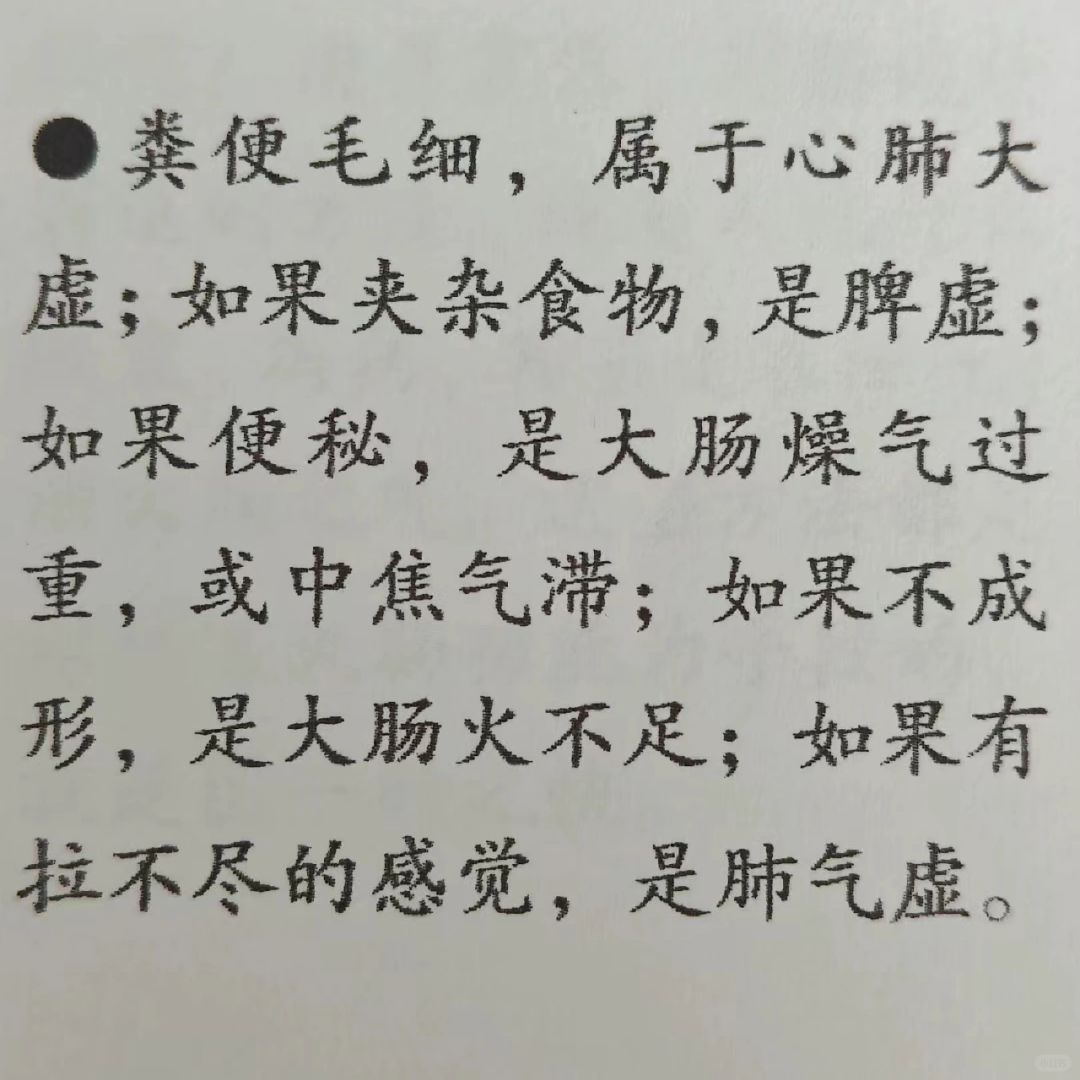 ●粪便毛细，属于心肺大
虚；如果夹杂食物，是脾虚；
如果便秘，是大肠燥气过
重，或中焦气滞；如果不成
形，是大肠火不足；如果有
拉不尽的感觉，是肺气虚。